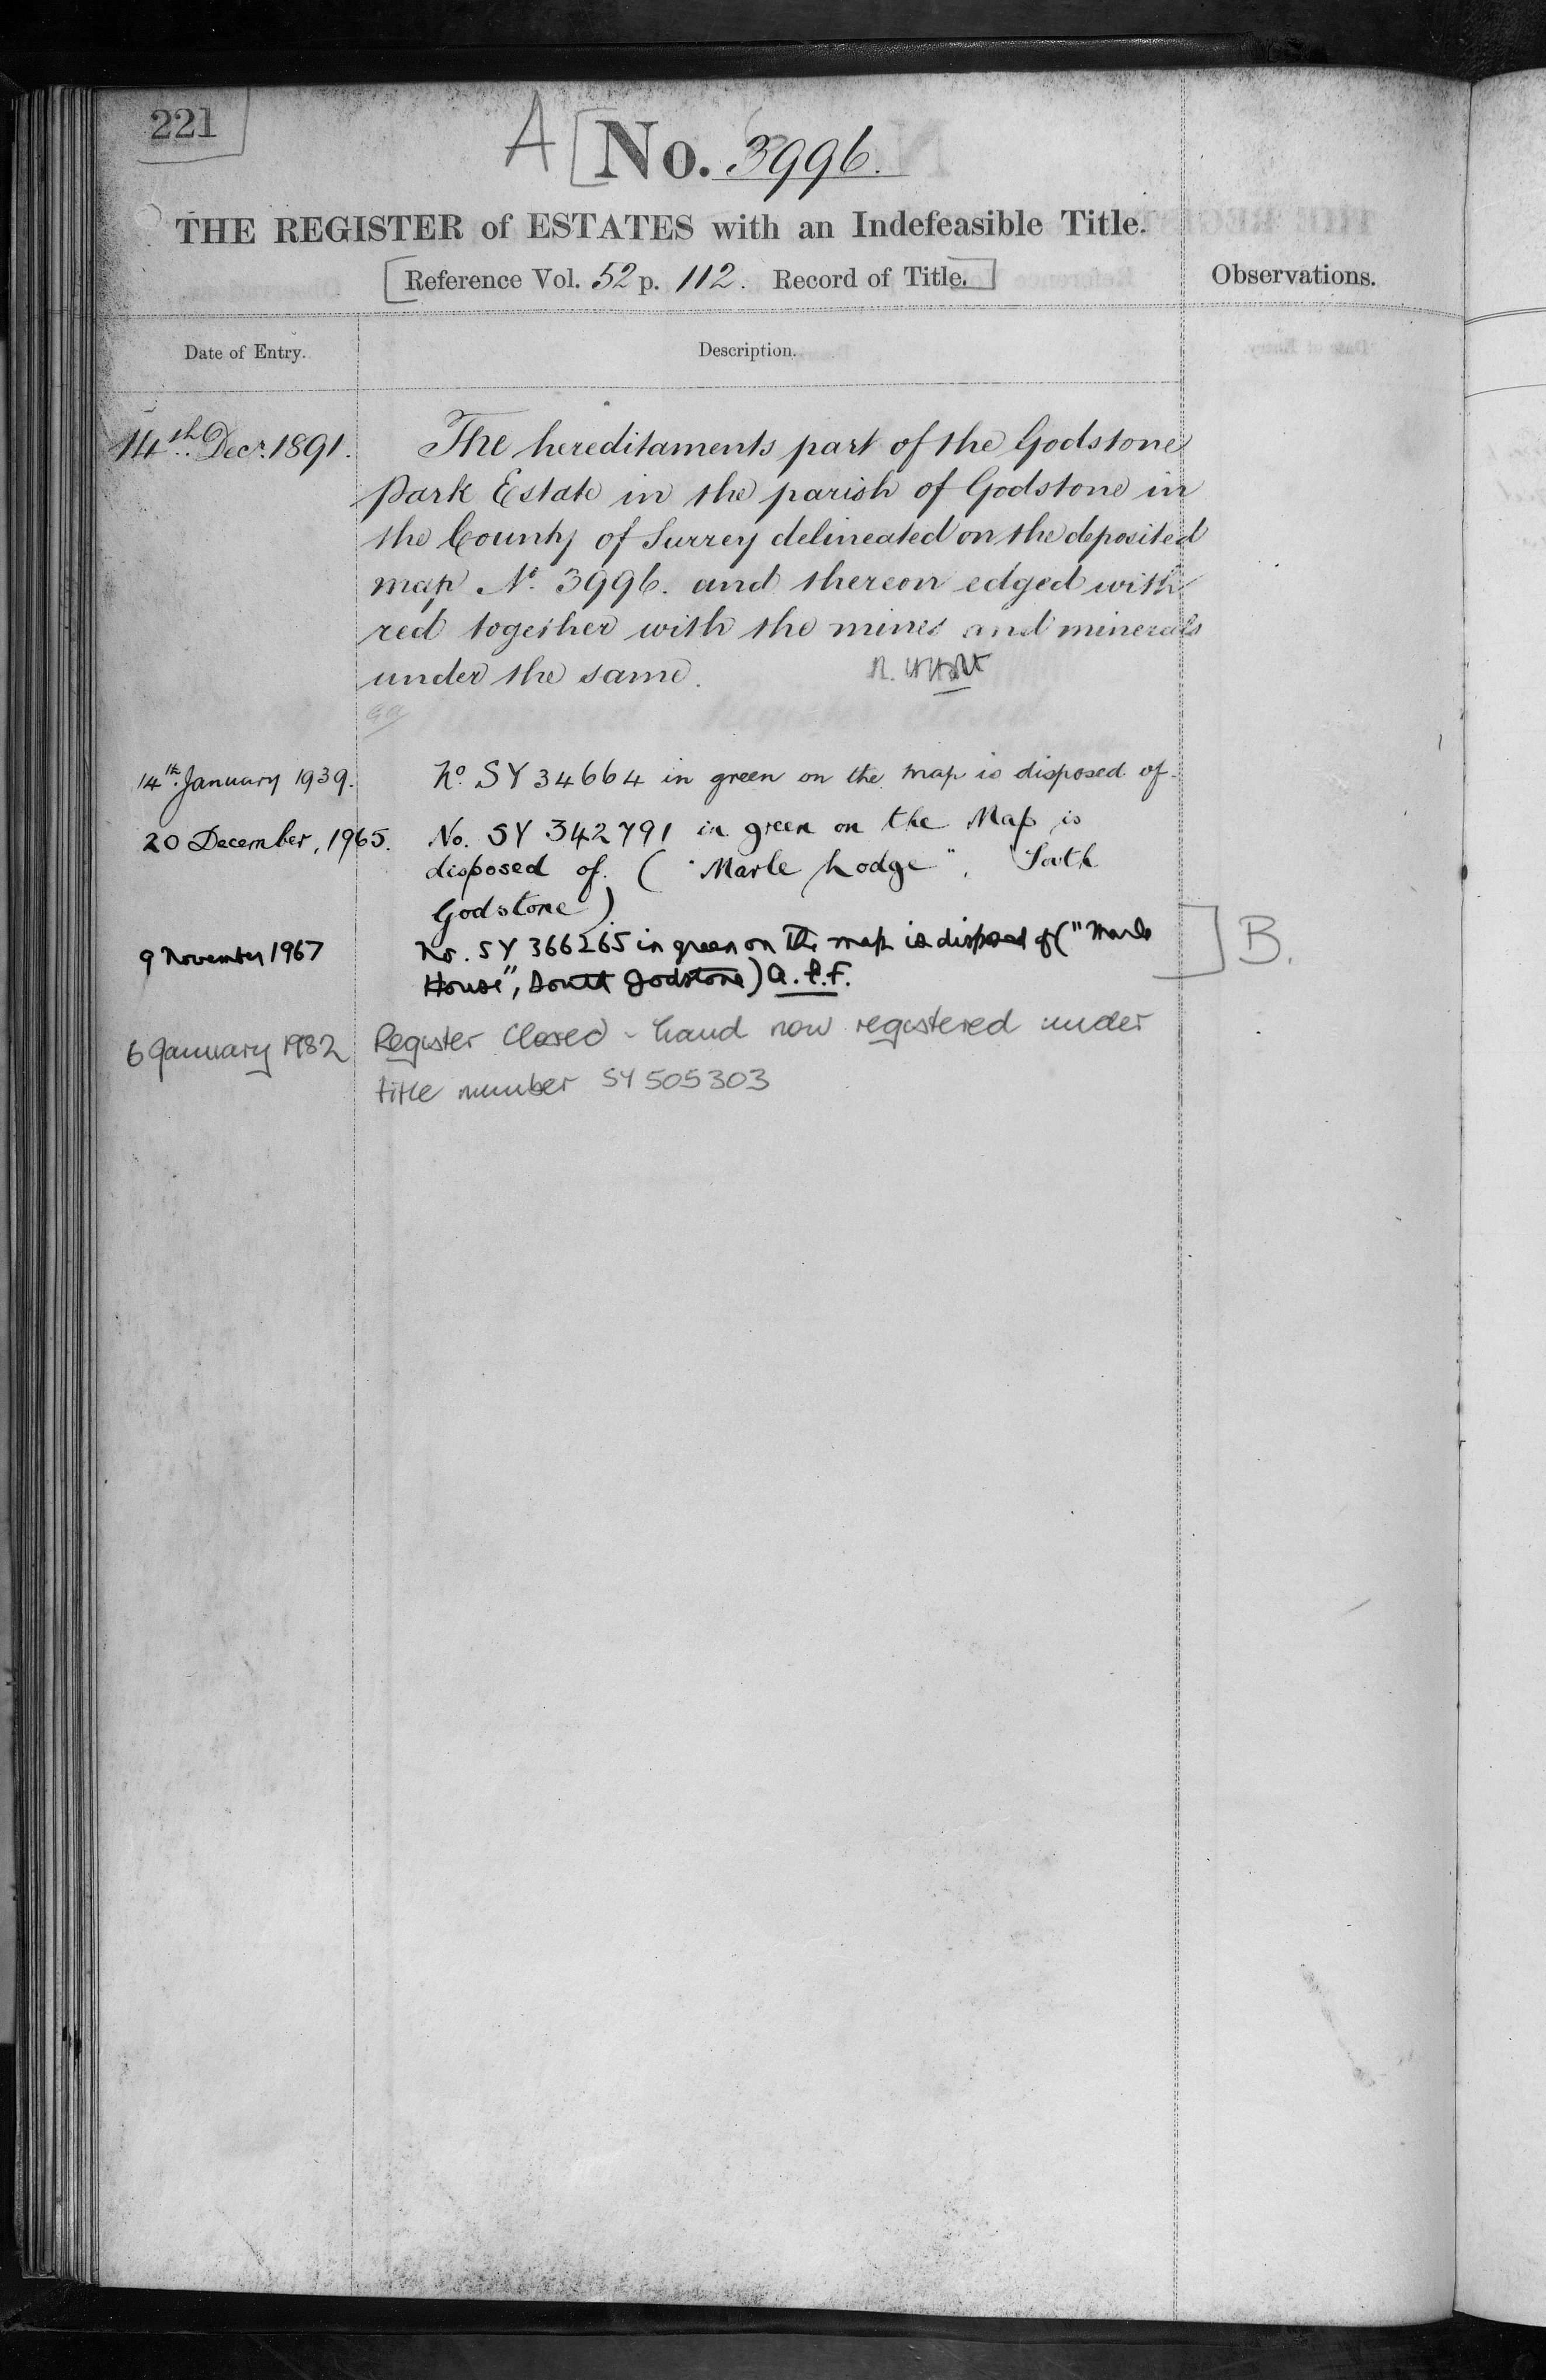 221
A [No. 3996.
THE REGISTER of ESTATES with an Indefeasible Title.
[Reference Vol. 52 p. 112. Record of Title.]
Observations.
Date of Entry.
Description.
14th Decr. 1891. The hereditaments part of the Godstone
Park Estate in the parish of Godstone in
the County of Surrey delineated on the deposited
map No. 3996. and thereon edged with
red together with the mines and minerals
under the same.
14th January 1939. No. SY 34664 in green on the map is disposed of.
20 December, 1965. No. SY 342791 in green on the Map is
disposed of. ("Marle Lodge", South
Godstone).
9 November 1967 No. SY 366265 in green on the map is disposed of ("Marle
House", South Godstone)
] B.
6 January 1982 Register Closed - Land now registered under
title number SY 505303